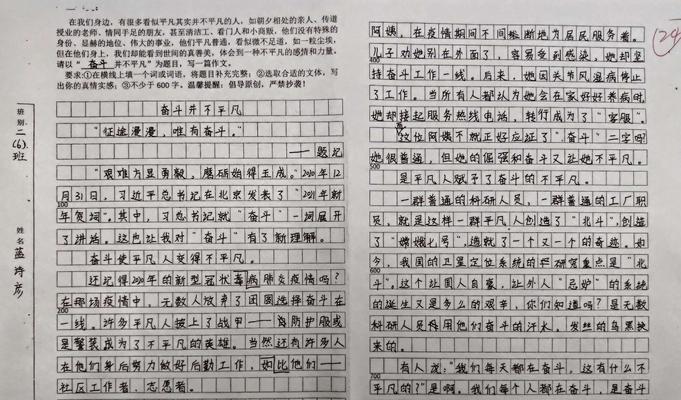 在我们身边，有很多看似平凡其实并不平凡的人，如朝夕相处的亲人、传道
授业的老师、情同手足的朋友，甚至清洁工、看门人和小商贩，他们没有特殊的
身份、显赫的地位、伟大的事业，他们平凡普通，看似微不足道，如一粒尘埃，
但在他们身上，我们却能看到世间的真善美，体会到一种不平凡的感情和力量，
请以“ 奋斗 并不平凡”为题目，写一篇作文。
要求:①在横线上填一个词或词语，将题目补充完整；②选取合适的文体，写
出你的真情实感；③不少于 600 字。温馨提醒：倡导原创，严禁抄袭！
班别：二(6)班
姓名 蓝诗彦
奋斗并不平凡
“征途漫漫，唯有奋斗。”
——题记
“艰难方显勇毅，磨砺始得玉成。”2020年12
月31日，习近平总书记在北京发表了“2021年新
100
年贺词”。其中，习总书记就“奋斗”一词展开
了讲话。这也让我对“奋斗”有了新理解。
奋斗使平凡人变得不平凡。
还记得2020年的新型冠状毒病肺炎疫情吗？
在那场疫情中，无数人放弃了团圆选择奋斗在
200
一线。许多平凡人披上了战甲——防护服或
是警装成为了不平凡的英雄。当然还有许多人
在他们身后努力做好后勤工作，如比他们——
社区工作者、志愿者。
阿姨，在疫情期间不间断地为居民服务着。
儿子劝她别在外面了，容易受到感染，她却坚
400
持奋斗工作一线。后来，她因关节风湿病停止
了工作。当所有人都认为她会在家好好养病时，
她却接起服务热线电话，转行成为了“客服”。
这位阿姨不就正好应证了“奋斗”二字吗？
她很普通，但她的倔强和奋斗又让她不平凡。
500
是平凡人赋予了奋斗的不平凡。
一群普通的科研人员，一群普通的工厂职
员，就是这样一群平凡人创造了“北斗”，创造
了“嫦娥七号”，造就了一个又一个的奇迹。如
今，我国的卫星定位系统的研究重点是“北
600
斗”。这个让国人自豪，让外人“忌妒”的系统
的诞生又是多么的艰辛，你们知道吗？是无数
科研人员用他们奋斗的汗水，发丝的乌黑换
来的。
有人说：“我们每天都在奋斗，这有什么不
700
平凡的？”是啊，我们每个人都在奋斗，是奋斗